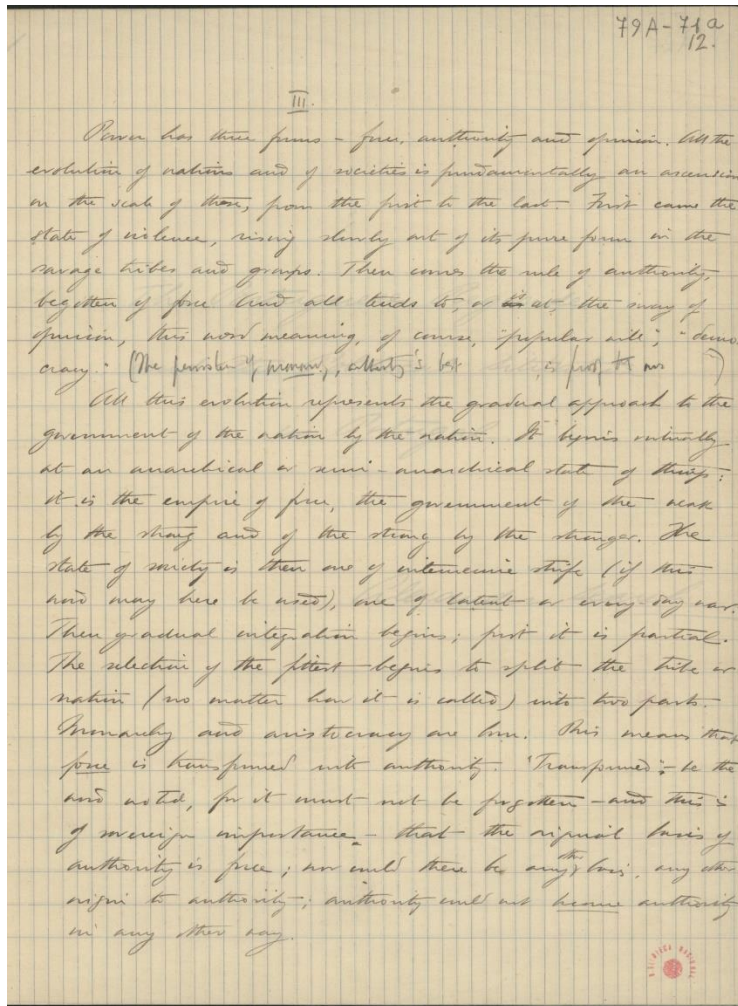 79A-71a
12.
III.
Power has three forms - force, authority and opinion. All the
evolution of nations and of societies is fundamentally an ascension
on the scale of these, from the first to the last. First came the
state of violence, rising slowly out of its pure form in the
savage tribes and groups. Then comes the rule of authority,
begotten of force. And all tends to, or is at, the sway of
opinion, this word meaning, of course, "popular rule", "demo-
cracy." (The of monarchy, authority's best is proof )
All this evolution represents the gradual approach to the
government of the nation by the nation. It begins virtually
at an anarchical or semi-anarchical state of things:
it is the empire of force, the government of the weak
by the strong and of the strong by the stronger. The
state of society is then one of internecine strife (if this
word may here be used), one of latent or every-day war.
Then gradual integration begins; first it is partial.
The selection of the fittest begins to split the tribe or
nation (no matter how it is called) into two parts.
Monarchy and aristocracy are born. This means that
force is transformed into authority. "Transformed" - be the
word noted, for it must not be forgotten - and this is
of sovereign importance - that the original basis of
authority is force; nor could there be any other basis, any other
origin to authority; authority could not become authority
in any other way.
BIBLIOTECA NACIONAL